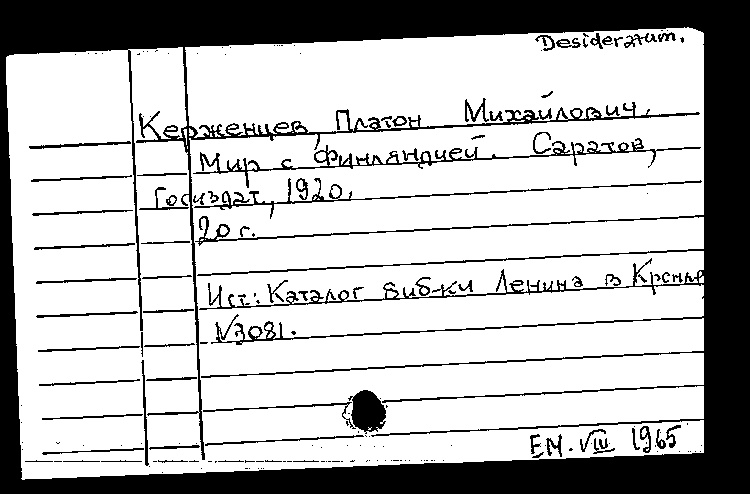 Desideratum.
Керженцев, Платон Михайлович.
Мир с Финляндией. Саратов,
Госиздат, 1920.
20 с.
Ист: Каталог биб-ки Ленина в Кремле
№3081.
ЕМ. VIII 1965